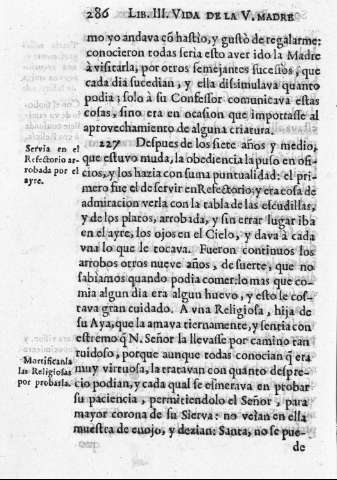 286 LIB. III. VIDA DE LA V. MADRE
mo yo andava cõ hastio, y gustò de regalarme:
conocieron todas seria esto aver ido la Madre
à visitarla, por otros semejantes sucessos, que
cada dia sucedian, y ella dissimulava quanto
podia; solo à su Confessor comunicava estas
cosas, sino era en ocasion que importasse al
aprovechamiento de alguna criatura.
227 Despues de los siete años y medio,
que estuvo muda, la obediencia la puso en ofi-
cios, y los hazia con suma puntualidad: el pri-
mero fue el de servir en Refectorio; y era cosa de
admiracion verla con la tabla de las escudillas,
y de los platos, arrobada, y sin errar lugar iba
en el ayre, los ojos en el Cielo, y dava à cada
vna lo que le tocava. Fueron continuos los
arrobos otros nueve años, de suerte, que no
sabiamos quando podia comer: lo mas que co-
mia algun dia era algun huevo, y esto le cos-
tava gran cuidado. A vna Religiosa, hija de
su Aya, que la amava tiernamente, y sentia con
estremo q̃ N. Señor la llevasse por camino tan
ruidoso, porque aunque todas conocian q̃ era
muy virtuosa, la tratavan con quanto despre-
cio podian, y cada qual se esmerava en probar
su paciencia, permitiendolo el Señor, para
mayor corona de su Sierva: no veian en ella
muestra de enojo, y dezian: Santa, no se pue-
de
Servia en el
Refectorio ar-
robada por el
ayre.
Mortificanla
las Religiosas
por probarla.